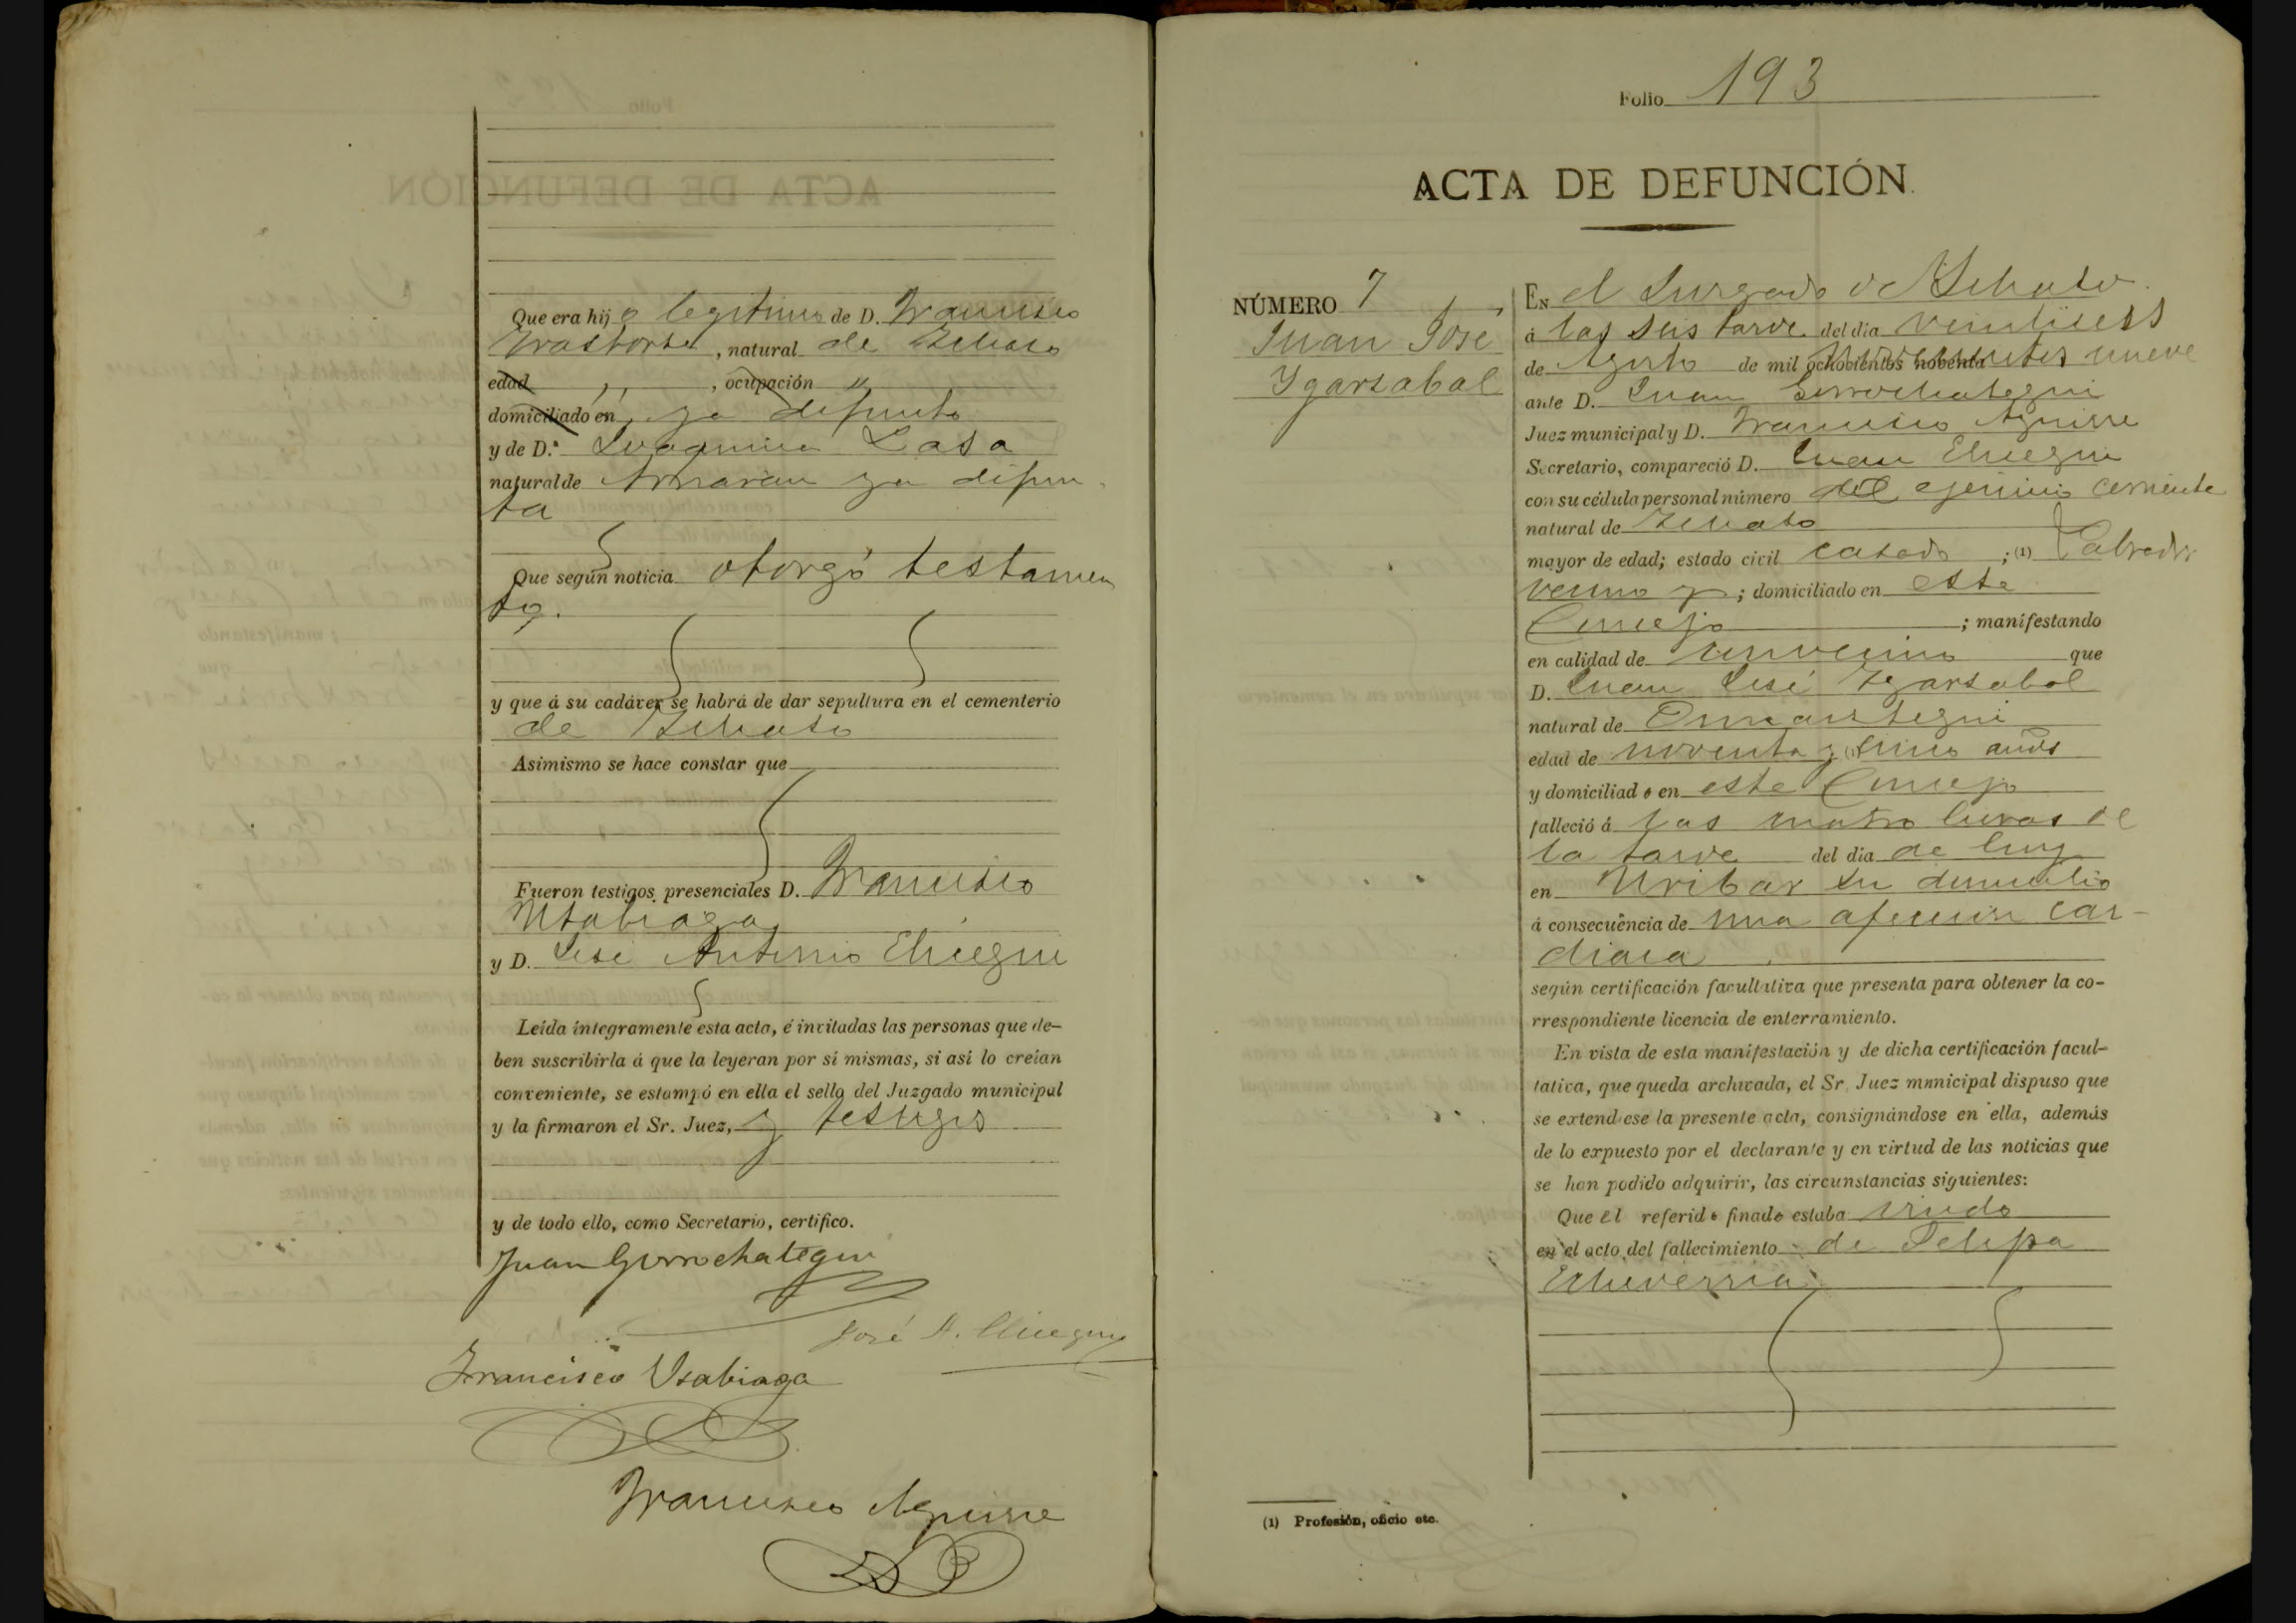 Que era hijo legitimo de D. Francisco
, natural de Ichaso
edad , ocupación "
domiciliado en ya difunto
y de D.ª Joaquina Lasa
natural de Arriaran ya difun
ta
Que según noticia otorgó testamen
to.
y que á su cadáver se habrá de dar sepultura en el cementerio
de Ichaso
Asimismo se hace constar que
Fueron testigos presenciales D. Francisco
Usabiaga
y D. José Antonio Elicegui
Leída íntegramente esta acta, é invitadas las personas que de-
ben suscribirla á que la leyeran por sí mismas, si así lo creían
conveniente, se estampó en ella el sello del Juzgado municipal
y la firmaron el Sr. Juez, y testigos
y de todo ello, como Secretario, certifico.
Juan Gorrochategui
José A. Elicegui
Francisco Usabiaga
Francisco Aguirre
Folio 193
ACTA DE DEFUNCIÓN.
NÚMERO 7
Juan José
Ygarzabal
En el Juzgado de Ichaso
á las seis tarde del dia
de Agosto de mil ochocientos noventa novecientos nueve
ante D. Juan Gorrochategui
Juez municipal y D. Francisco Aguirre
Secretario, compareció D. Juan Elicegui
con su cédula personal número del ejercicio corriente
natural de Ichaso
mayor de edad; estado civil casado ; (1) Labrador
vecino y ; domiciliado en este
Concejo ; manifestando
en calidad de convecino que
D. Juan José Igarzabal
natural de Ormaiztegui
edad de noventa y (1) cinco años
y domiciliado en este Concejo
falleció á las cuatro horas de
la tarde del dia de hoy
en Uribar su domicilio
á consecuência de una afección car-
diaca
según certificación facultativa que presenta para obtener la co-
rrespondiente licencia de enterramiento.
En vista de esta manifestación y de dicha certificación facul-
tativa, que queda archivada, el Sr. Juez municipal dispuso que
se extendiese la presente acta, consignándose en ella, además
de lo expuesto por el declarante y en virtud de las noticias que
se han podido adquirir, las circunstancias siguientes:
Que el referido finado estaba viudo
en el acto del fallecimiento de Felipa
Echeverria
(1) Profesión, oficio etc.